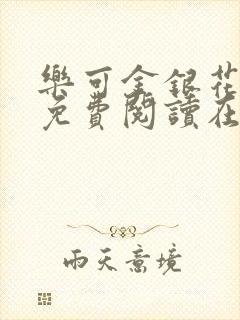 樂可金銀花
免費閱讀在
雨天意境